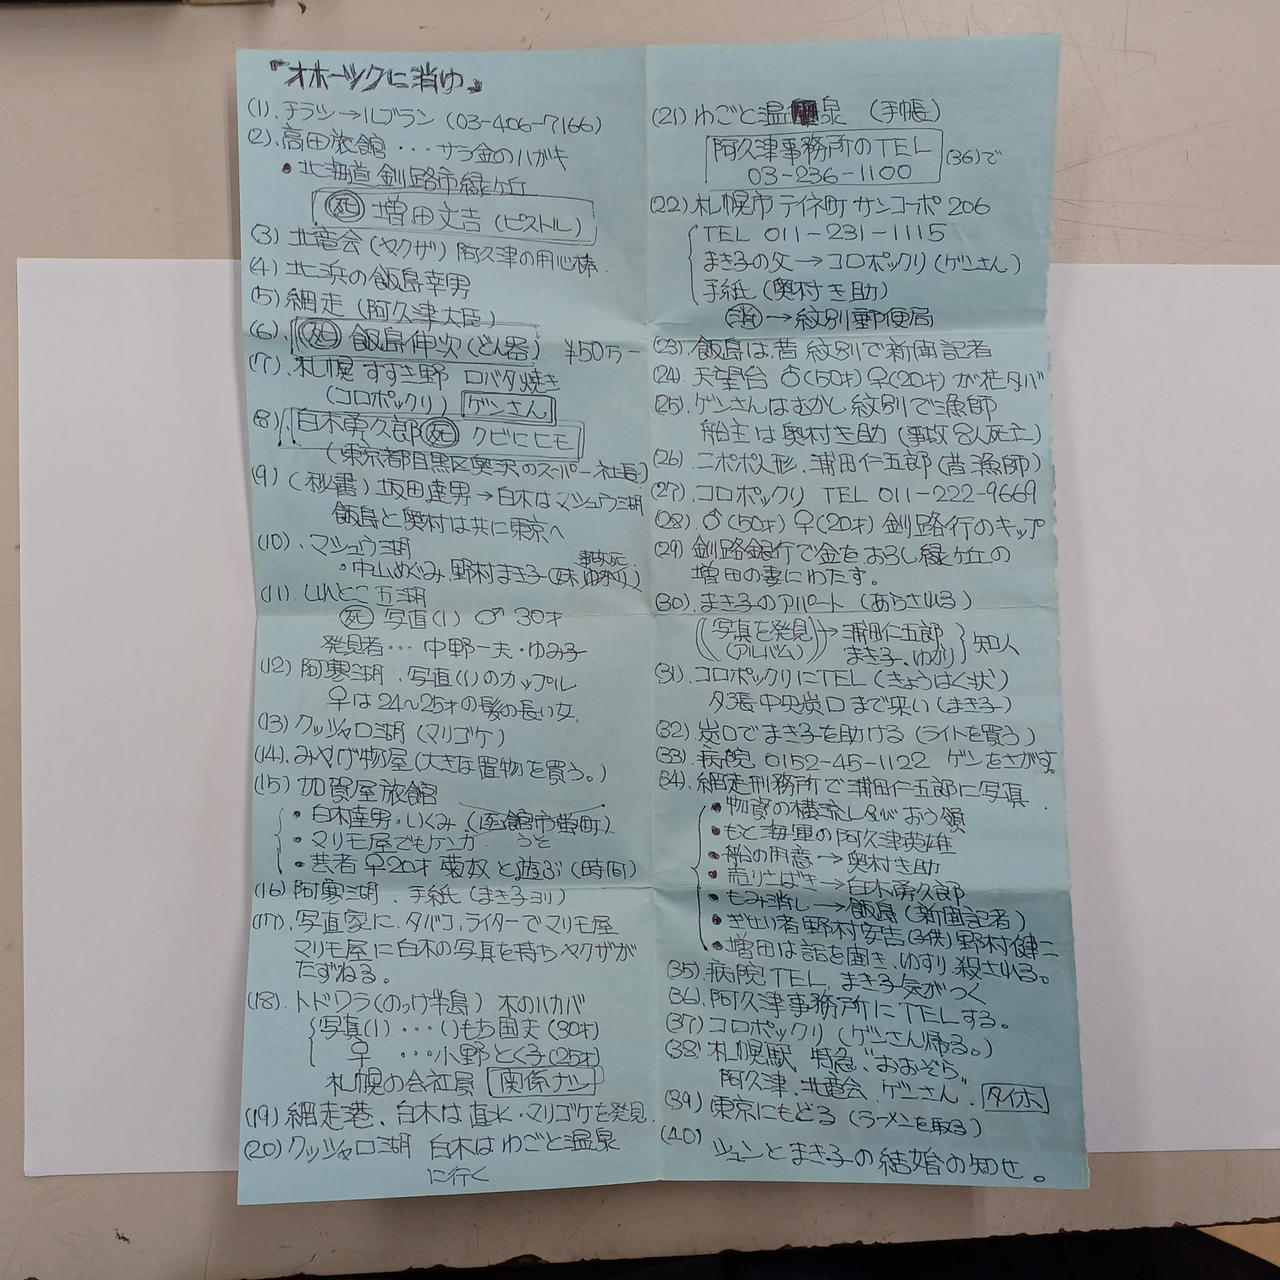 『オホーツクに消ゆ』
(1). チラシ→ルブラン (03-406-7166)
(2). 高田旅館 ･･･ サラ金のハガキ
• 北海道 釧路市緑ヶ丘
死 増田文吉 (ピストル)
(3) 北竜会 (ヤクザ) 阿久津の用心棒.
(4) 北浜の飯島幸男
(5) 網走 (阿久津大臣)
(6). 死 飯島伸次 (どん器) ¥50万-
(7). 札幌 すすき野 ロバタ焼き
(コロポックリ) ゲンさん
(8). 白木勇久郎 死 クビにヒモ
(東京都目黒区奥沢のスーパー社長)
(9) (秘書) 坂田達男→白木はマシュウ湖
飯島と奥村は共に東京へ
(10). マシュウ湖
• 中山めぐみ. 野村まき子 (妹 ゆかり) 事故死
(11). しれとこ五湖
死 写真(1) ♂ 30才
発見者･･･ 中野一夫・ゆみ子
(12) 阿寒湖. 写真(1)のカップル
♀は24〜25才の髪の長い女.
(13) クッシャロ湖 (マリゴケ)
(14). みやげ物屋 (大きな置物を買う。)
(15) 加賀屋旅館
• 白木達男・いくみ (函館市螢町)
• マリモ屋でもケンカ うそ
• 芸者 ♀20才 菊奴と遊ぶ (時間)
(16) 阿寒湖. 手紙 (まき子ヨリ)
(17). 写真家に、タバコ,ライターでマリモ屋
マリモ屋に白木の写真を持ちヤクザが
たずねる。
(18). トドワラ (のっけ半島) 木のハカバ
写真(1) ･･･ いもち国夫 (30才)
♀ ･･･ 小野とく子 (25才)
札幌の会社員 関係ナシ
(19) 網走港、白木は直水・マリゴケを発見.
(20) クッシャロ湖 白木は わごと温泉
に行く
(21) わごと温泉 (手帳)
阿久津事務所のTEL
03-236-1100 (36)で
(22) 札幌市テイネ町 サンコーポ206
TEL 011-231-1115
まき子の父→コロポックリ (ゲンさん)
手紙 (奥村き助)
消→紋別郵便局
(23). 飯島は昔 紋別で新聞記者
(24). 天望台 ♂(50才) ♀(20才) が花タバ
(25). ゲンさんはむかし 紋別で漁師
船主は奥村き助 (事故 8人死亡)
(26). ニポポ人形. 浦田仁五郎 (昔漁師)
(27). コロポックリ TEL 011-222-9669
(28). ♂(50才) ♀(20才) 釧路行のキップ
(29) 釧路銀行で金をおろし緑ヶ丘の
増田の妻にわたす。
(30). まき子のアパート (あらされる)
写真を発見 (アルバム) → 浦田仁五郎 まき子、ゆかり 知人
(31). コロポックリにTEL (きょうはく状)
夕張中央炭口まで来い (まき子)
(32) 炭口でまき子を助ける (ライトを買う)
(33). 病院 0152-45-1122 ゲンをさがす。
(34). 網走刑務所で浦田仁五郎に写真.
• 物資の横流し&がおう領
• もと海軍の阿久津英雄
• 船の用意→奥村き助
• 売りさばき→白木勇久郎
• もみ消し→飯島 (新聞記者)
• ぎせい者 野村安吉 (子供) 野村健二
• 増田は話を聞き、ゆすり 殺される。
(35). 病院TEL. まき子気がつく
(36). 阿久津事務所にTELする。
(37) コロポックリ (ゲンさん帰る。)
(38) 札幌駅 特急“おおぞら”
阿久津、北竜会、ゲンさん. タイホ
(39) 東京にもどる (ラーメンを取る)
(40) シュンとまき子の結婚の知せ。